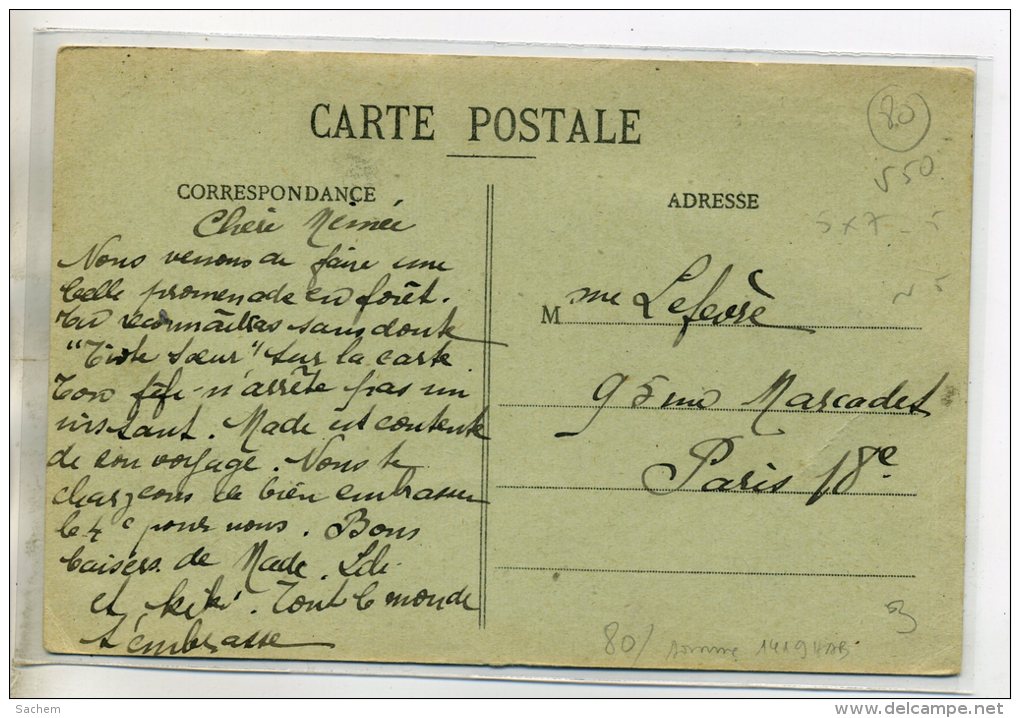 CARTE POSTALE
CORRESPONDANCE
Chère Mémée
Nous venons de faire une
belle promenade en forêt.
Tu reconnaîtras sans doute
"Tiote Sœur" sur la carte.
Ton féfé n'arrête pas un
instant. Made est contente
de son voyage. Nous te
chargeons de bien embrasser
le 4e pour nous. Bons
baisers de Made.
et Kiki. Tout le monde
t'embrasse
ADRESSE
M me Lefevre
95 rue Marcadet
Paris 18e
80
550
5 x 7 - 5
80/ somme 1419
Sachem
delcampe.net